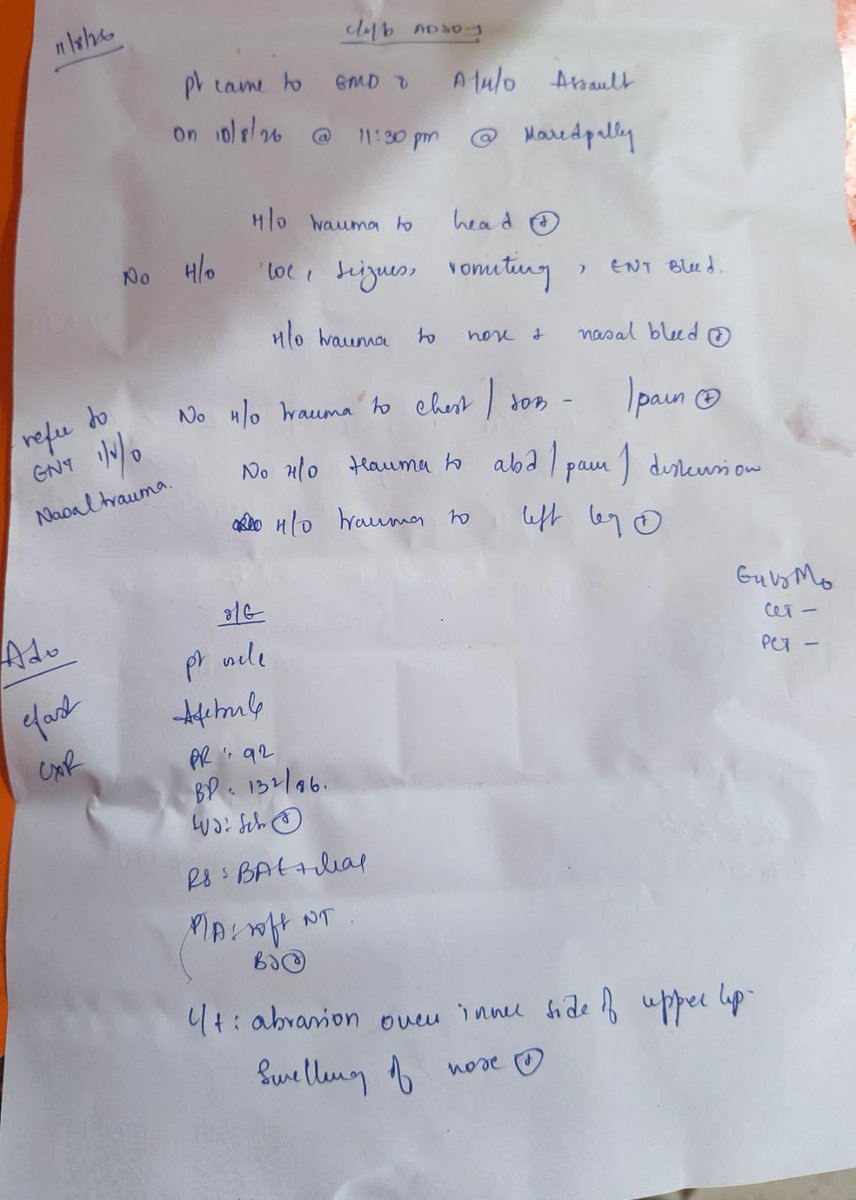 11/8/26
c/s/b ADSO-1
pt came to EMD c A/H/O Assault
On 10/8/26 @ 11:30 pm @ Maredpally
H/O trauma to head (+)
No H/o LOC, seizures, vomiting, ENT Bleed.
H/o trauma to nose & nasal bleed (+)
No H/o trauma to chest / SOB - / pain (+)
No H/o trauma to abd / pain / distension
H/o trauma to left leg (+)
refer to
ENT i/v/o
Nasal trauma.
E4V5M6
CCT -
PCT -
O/E
pt
Afebrile
PR: 92
BP: 132/86.
(+)
RS: BAE + clear
P/A: soft NT
BS (+)
L/E: abrasion over inner side of upper lip
Swelling of nose (+)
Adv
efast
CXR